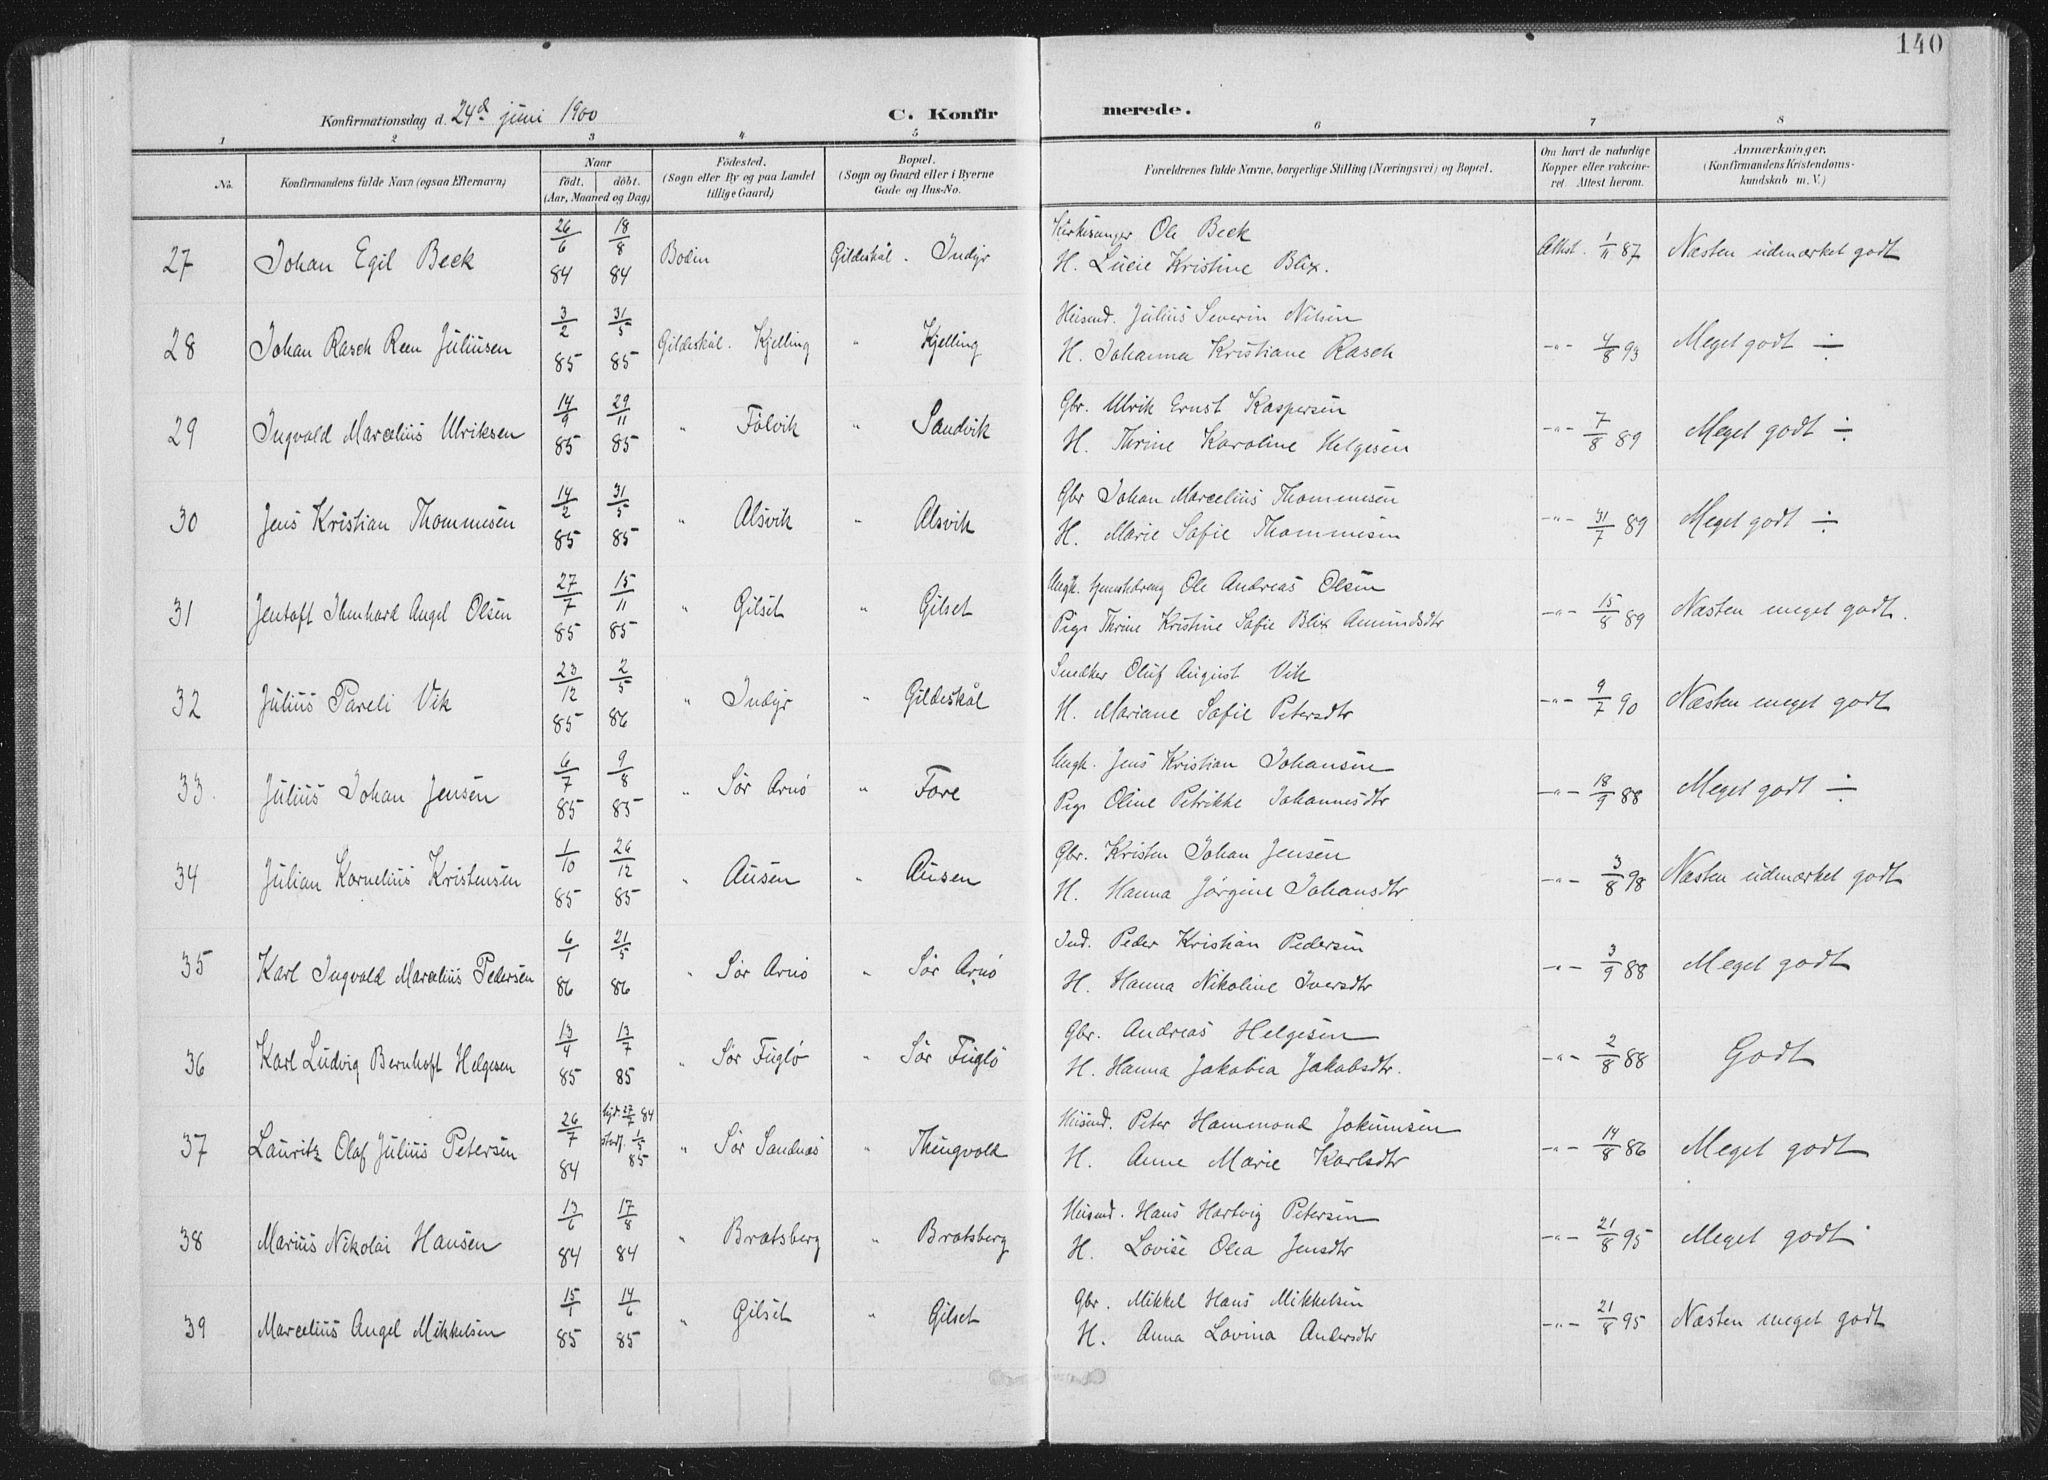 140
Konfirmationsdag d. 24de juni 1900 C. Konfirmerede.
1 2 3 4 5 6 7 8
No. Konfirmandens fulde Navn (ogsaa Efternavn) Naar født, døbt. (Aar, Maaned og Dag) Fødested. (Sogn eller By og paa Landet tillige Gaard) Bopæl. (Sogn og Gaard eller i Byerne Gade og Hus-No. Forældrenes fulde Navne, borgerlige Stilling (Næringsvei) og Bopæl. Om havt de naturlige Kopper eller vakcineret. Attest herom. Anmærkninger. (Konfirmandens Kristendomskundskab m. V.)
27 Johan Egil Beck 26/6 84 18/8 84 Bodin Gildeskål. Indyr Kirkesanger Ole Beck
H. Lucie Kristine Blix. Attest. 1/11 87 Næsten udmærket godt
28 Johan Rasch Reen Juliusen 3/2 85 31/5 85 Gildeskål. Kjelling " Kjelling Husmd. Julius Severin Nilsen
H. Johanna Kristiane Rasch -"- 4/8 93 Meget godt ÷
29 Ingvald Marcelius Ulriksen 14/9 85 29/11 85 " Følvik " Sandvik Gbr. Ulrik Ernst Kaspersen
H. Thrine Karoline Helgesen -"- 7/8 89 Meget godt ÷
30 Jens Kristian Thommesen 14/2 85 31/5 85 " Alsvik " Alsvik Gbr Johan Marcelius Thommesen
H. Marie Sofie Thommesen -"- 31/7 89 Meget godt ÷
31 Jentoft Ihenhard Angel Olsen 27/7 85 15/11 85 " Gilset " Gilset Ungk. tjenestedreng Ole Andreas Olsen
Pige Thrine Kristine Sofie Blix Amundsdtr -"- 15/8 89 Næsten meget godt.
32 Julius Pareli Vik 23/12 85 2/5 86 " Indyr " Gildeskål Snedker Oluf August Vik
H. Mariane Sofie Petersdtr -"- 9/7 90 Næsten meget godt
33. Julius Johan Jensen 6/7 85 9/8 85 " Sør Arnø " Fore Ungk. Jens Kristian Johansen
Pige Oline Petrikke Johannesdtr -"- 18/9 88 Meget godt ÷
34 Julian Kornelius Kristensen 1/10 85 26/12 85 " Ausen " Ausen Gbr. Kristen Johan Jensen
H. Hanna Jørgine Johansdtr -"- 3/8 98 Næsten udmærket godt
35 Karl Ingvald Marcelius Pedersen 6/1 86 21/5 86 " Sør Arnø " Sør Arnø Ind. Peder Kristian Pedersen
H. Hanna Nikoline Iversdtr -"- 3/9 88 Meget godt
36 Karl Ludvig Bernhoft Helgesen 13/4 85 13/7 85 " Sør Fuglø " Sør Fuglø Gbr. Andreas Helgesen
H. Hanna Jakobea Jakobsdtr. -"- 2/8 88 Godt
37 Lauritz Olaf Julius Petersen 26/7 84 hjd. 27/7 84 stadf. 1/5 85 " Sør Sandnæs " Thingvold Husmd. Peter Hammond Jokumsen
H. Anne Marie Karlsdtr -"- 14/8 86 Meget godt
38 Marius Nikolai Hansen 13/6 84 17/8 84 " Bratsberg " Bratsberg Husmd. Hans Hartvig Petersen
H. Lovise Olea Jensdtr -"- 21/8 95 Meget godt
39 Marcelius Angel Mikkelsen 15/1 85 14/6 85 " Gilset " Gilset Gbr. Mikkel Hans Mikkelsen
H. Anna Lovina Andersdtr -"- 21/8 95 Næsten meget godt